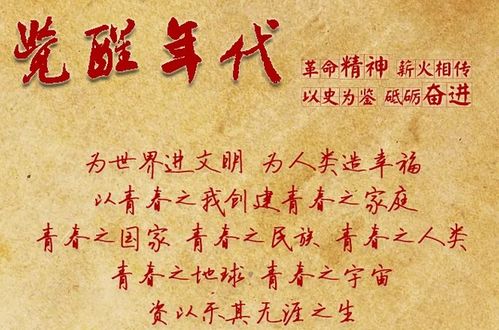 觉醒年代
革命精神 薪火相传
以史为鉴 砥砺奋进
为世界进文明 为人类造幸福
以青春之我创建青春之家庭
青春之国家 青春之民族 青春之人类
青春之地球 青春之宇宙
资以乐其无涯之生